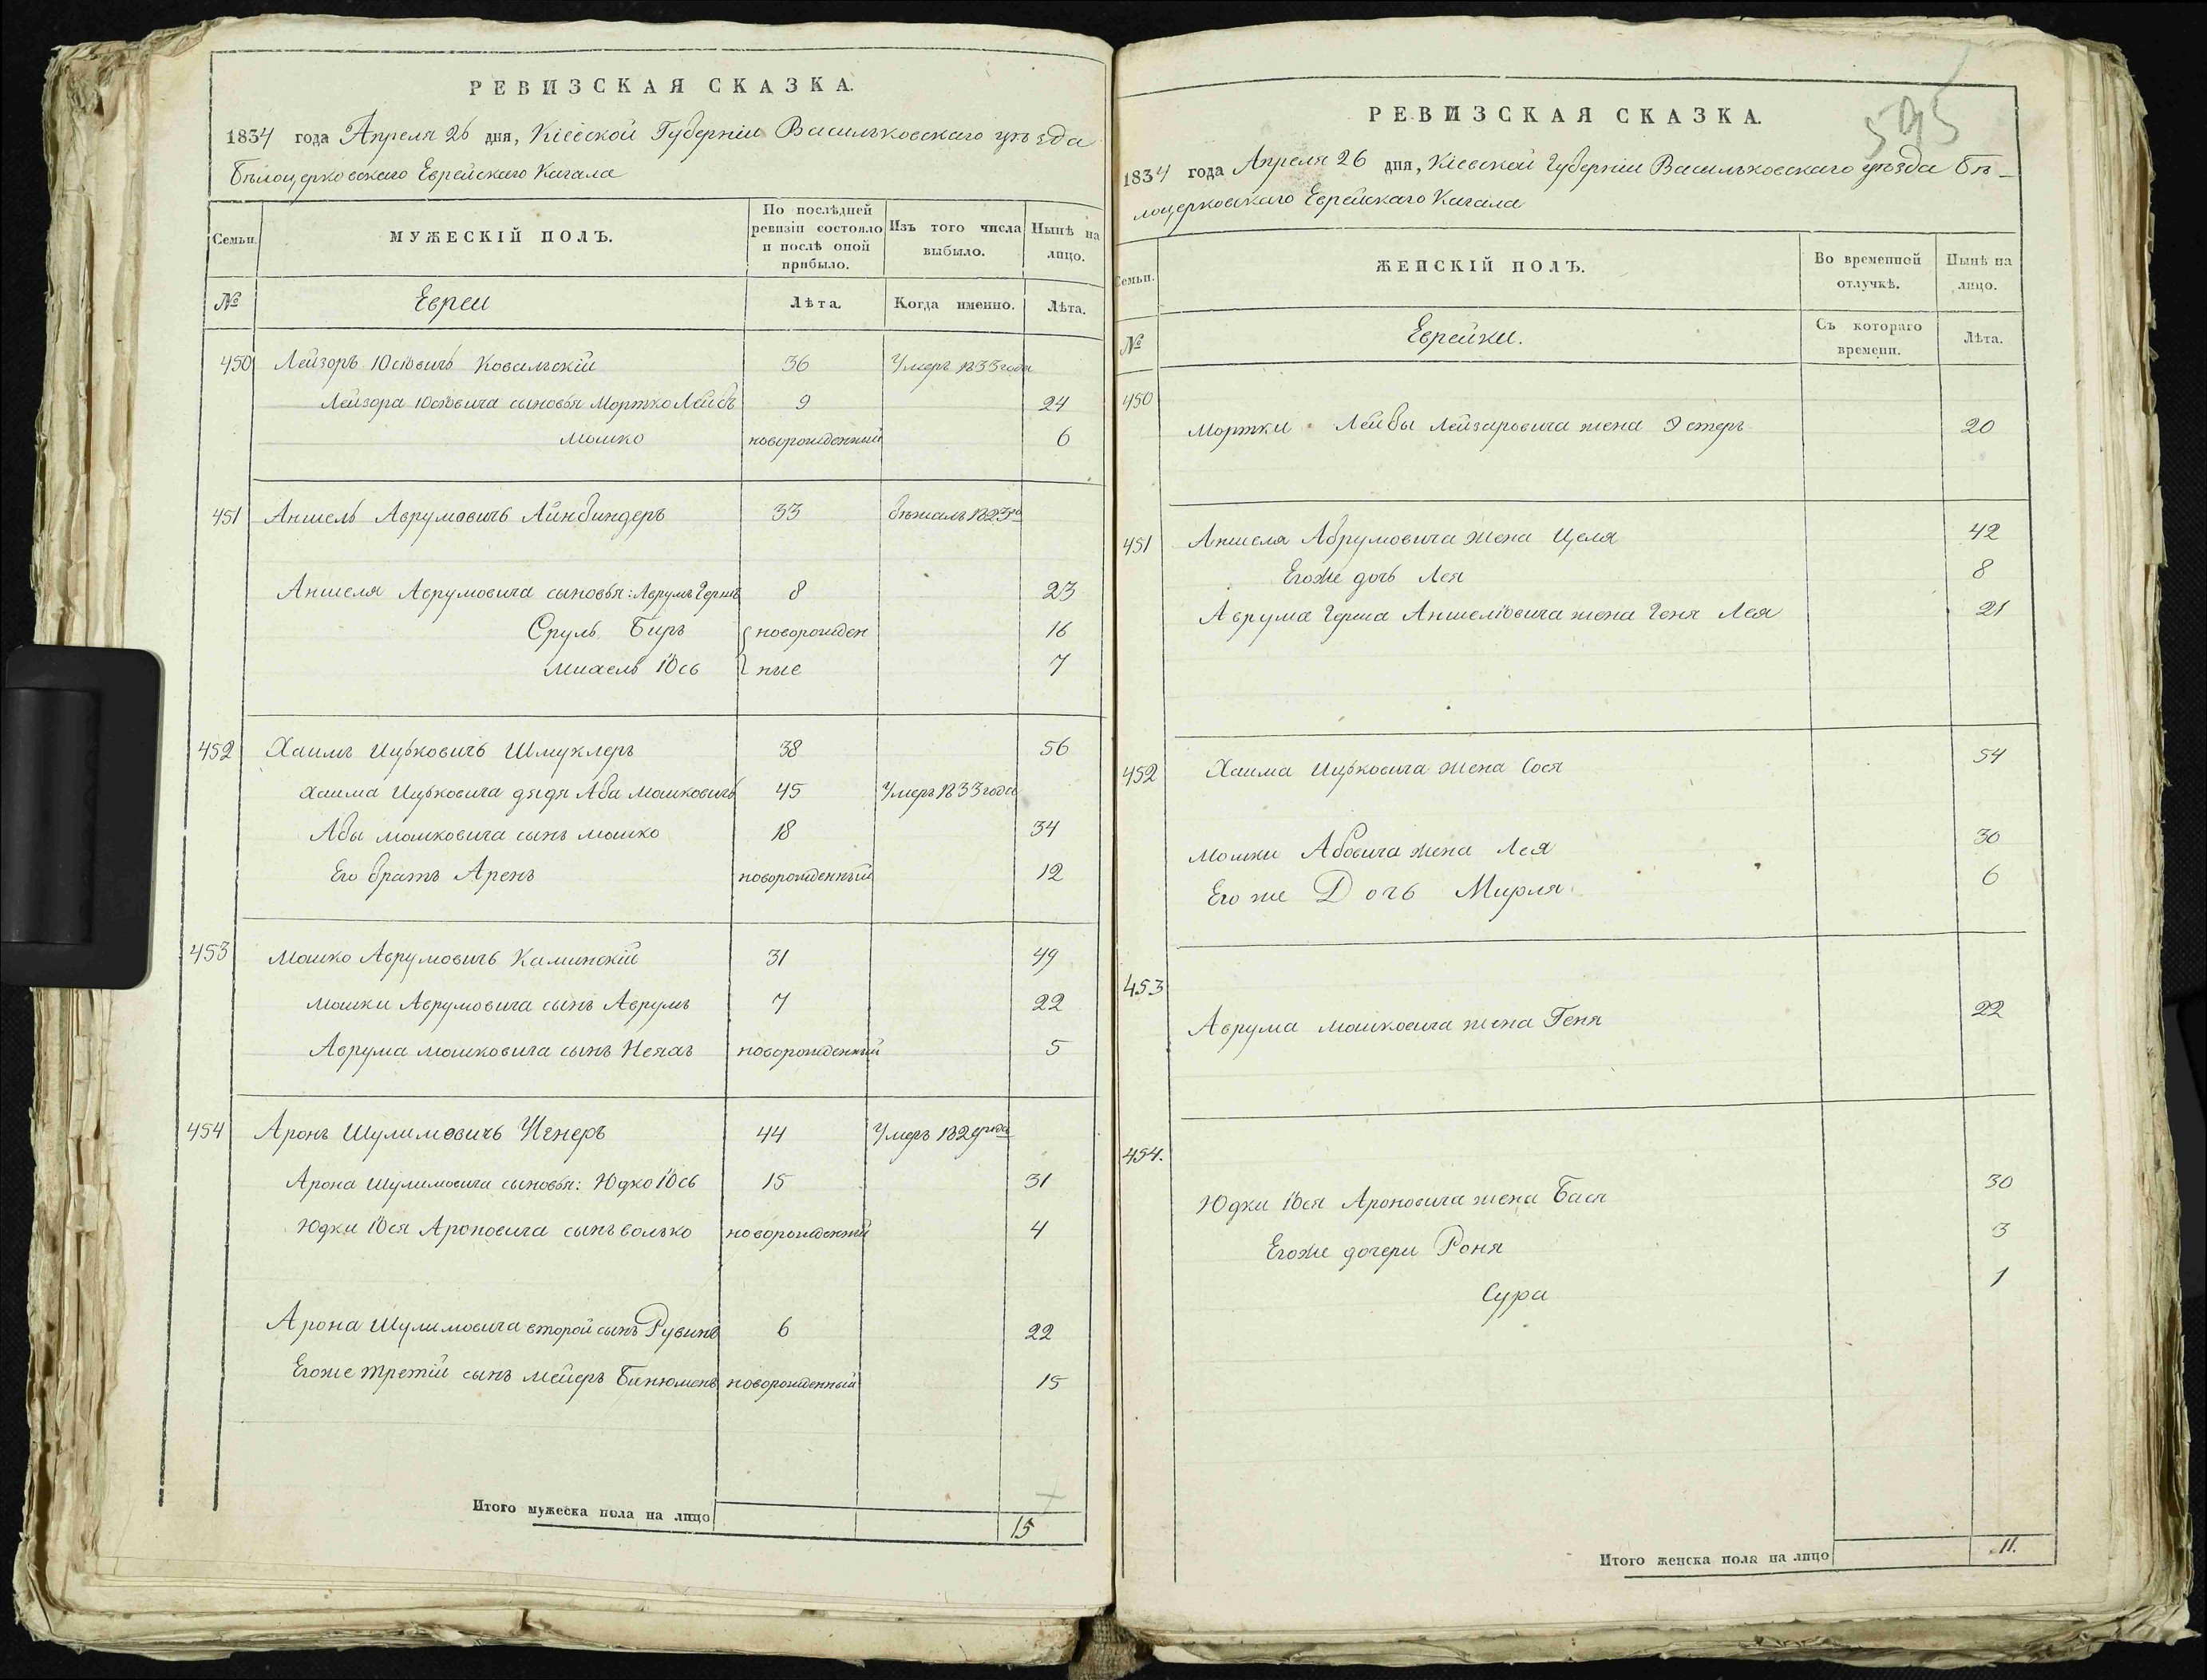 РЕВИЗСКАЯ СКАЗКА.
1834 года Апреля 26 дня, Кіевской Губерніи Васильковскаго уѣзда
Бѣлоцерковскаго Еврейскаго Кагала
Семьи.
МУЖЕСКІЙ ПОЛЪ.
По послѣдней ревизіи состояло и послѣ оной прибыло.
Изъ того числа выбыло.
Нынѣ на лицо.
№
Евреи
Лѣта.
Когда именно.
Лѣта.
450 Лейзоръ Юсіовичъ Ковальскій 36 Умеръ 1833 года
Лейзора Юсіовича сыновья Мортко Лейбъ 9 24
Мошко новорожденный 6
451 Аншель Аврумовичъ Айнбиндеръ 33 бѣжалъ 1823го
Аншеля Аврумовича сыновья: Аврумъ Гершъ 8 23
Сруль Биръ новорожден 16
Михель Юсь ные 7
452 Хаимъ Ицьковичъ Шмуклеръ 38 56
Хаима Ицьковича дядя Аба Мошковичъ 45 Умеръ 1833 года
Абы Мошковича сынъ Мошко 18 34
Его братъ Аренъ новорожденный 12
453 Мошко Аврумовичъ Каминскій 31 49
Мошки Аврумовича сынъ Аврумъ 7 22
Аврума Мошковича сынъ новорожденный 5
454 Аронъ Шулимовичъ 44 Умеръ 1829 года
Арона Шулимовича сыновья: Юдко Юсь 15 31
Юдки Юся Ароновича сынъ Волько новорожденный 4
Арона Шулимовича второй сынъ Рувинъ 6 22
Егоже третій сынъ Мейеръ Бинюменъ новорожденный 15
Итого мужеска пола на лицо 15
595
РЕВИЗСКАЯ СКАЗКА.
1834 года Апреля 26 дня, Кіевской Губерніи Васильковскаго уѣзда Бѣ-
лоцерковскаго Еврейскаго Кагала
Семьи.
ЖЕНСКІЙ ПОЛЪ.
Во временной отлучкѣ.
Нынѣ на лицо.
№
Еврейки.
Съ котораго времени.
Лѣта.
450
Мортки Лейбы Лейзаровича жена Эстеръ 20
451 Аншеля Абрумовича жена Целя 42
Егоже дочь Лея 8
Аврума Герша Аншеліовича жена Геня Лея 21
452 Хаима Ицьковича жена Сося 54
Мошки Абовича жена Лея 30
Его же Дочь Мирля 6
453
Аврума Мошковича жена Геня 22
454.
Юдки Юся Ароновича жена Бася 30
Егоже дочери Роня 3
Сура 1
Итого женска пола на лицо 11.